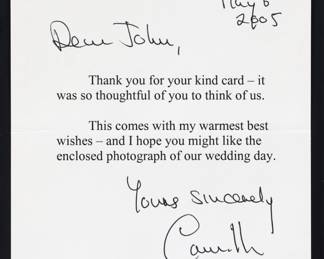 May 6
2005
Dear John,
Thank you for your kind card – it
was so thoughtful of you to think of us.
This comes with my warmest best
wishes – and I hope you might like the
enclosed photograph of our wedding day.
Yours sincerely